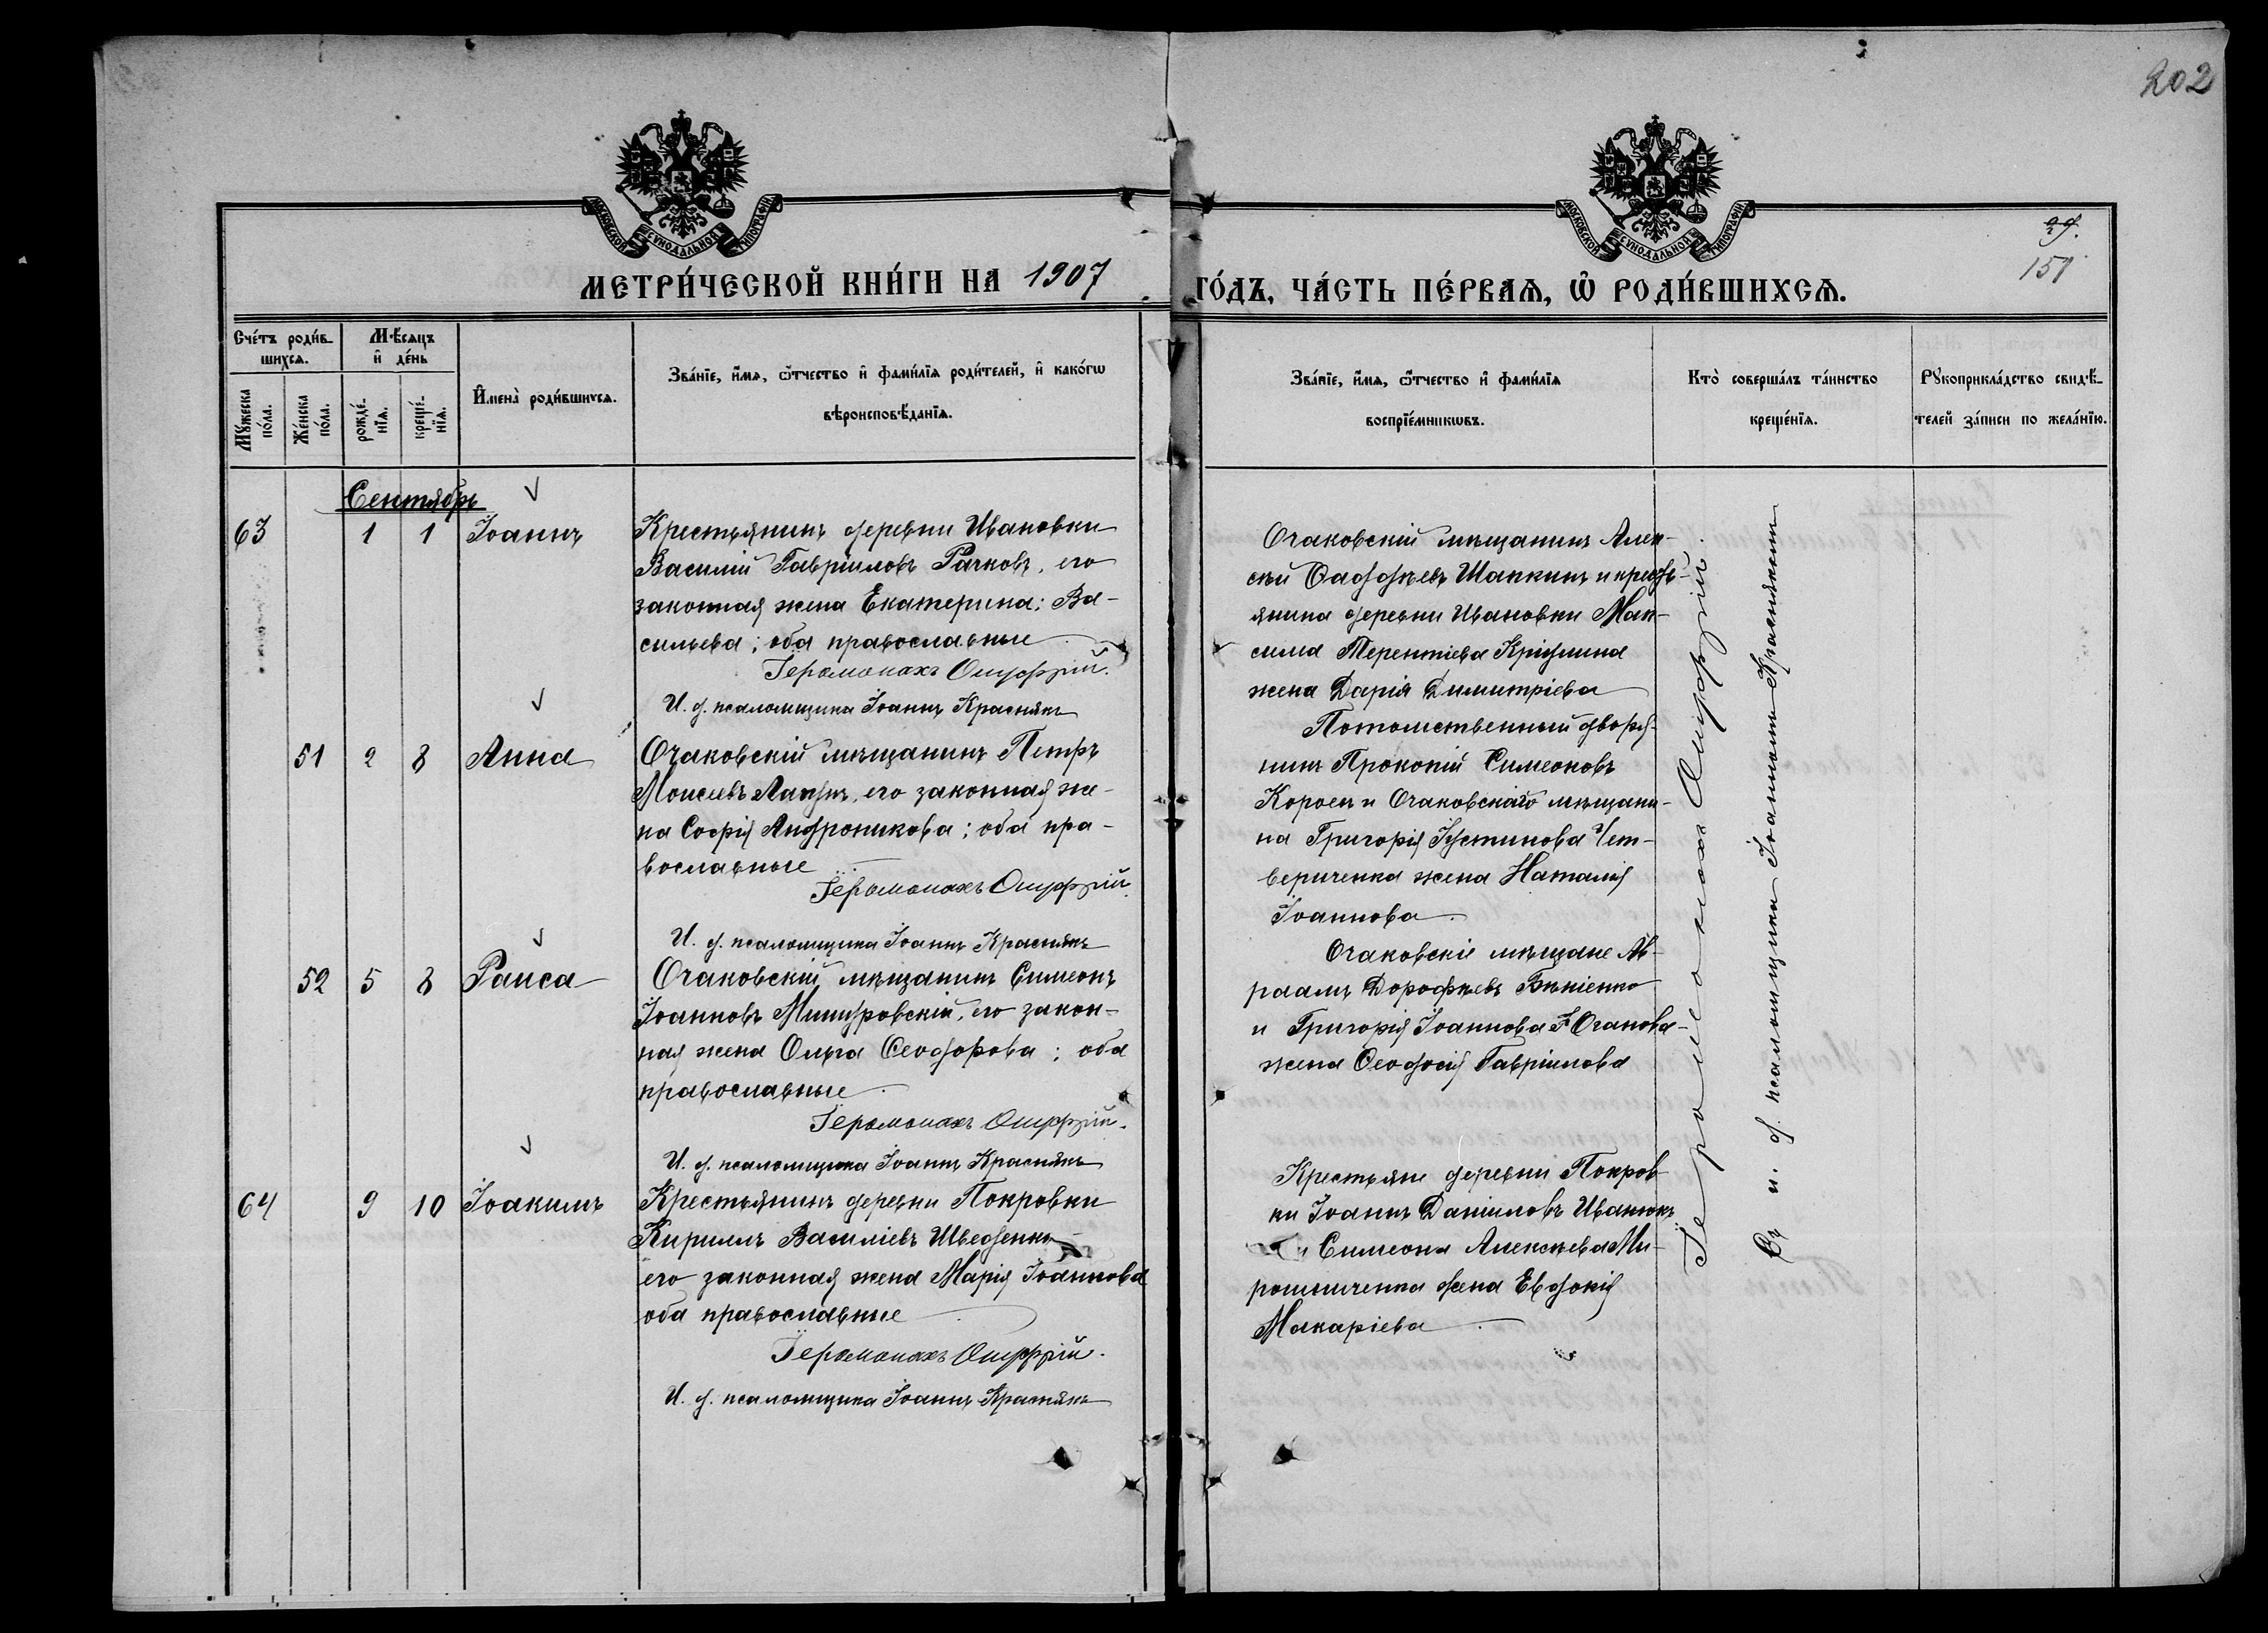 202
29.
151
МОСКОВСКОЙ СѴНОДАЛЬНОЙ ТИПОГРАФІИ
МОСКОВСКОЙ СѴНОДАЛЬНОЙ ТИПОГРАФІИ
МЕТРИ́ЧЕСКОЙ КНИ́ГИ НА 1907 ГО́ДЪ, ЧА́СТЬ ПЕ́РВАѦ, Ѡ҆ РОДИ́ВШИХСѦ.
Сче́тъ роди́в-
шихсѧ.
Мѣ́сѧцъ
и҆ де́нь
Мꙋ́жеска
по́ла.
Же́нска
по́ла.
рожде́-
нїѧ.
креще́-
нїѧ.
И҆мена̀ роди́вшихсѧ.
Зва́нїе, и҆́мѧ, ѻ҆́тчество и҆ фами́лїѧ роди́телей, и҆ како́гѡ
вѣроисповѣ́данїѧ.
Зва́нїе, и҆́мѧ, ѻ҆́тчество и҆ фами́лїѧ
воспрїе́мникѡвъ.
Кто̀ соверша́лъ та́инство
креще́нїѧ.
Рꙋкоприкла́дство свидѣ́-
телей за́писи по жела́нїю.
Сентябрь
63 1 1 Іоаннъ
Крестьянинъ деревни Ивановки
Василій Гавріиловъ Рачковъ, его
законная жена Екатерина; Ва-
сильева; оба православные
Іеромонахъ Онуфрій.
И. д. псаломщика Іоаннъ Краснякъ
Очаковскій мѣщанинъ Алек-
сѣй Фаддѣевъ Шапкинъ и кресть-
янина деревни Ивановки Мак-
сима Терентіева
жена Дарія Димитріева
51 2 8 Анна
Очаковскій мѣщанинъ Петръ
Моисеевъ его законная же-
на Софія Андроникова; оба пра-
вославные
Іеромонахъ Онуфрій.
И. д. псаломщика Іоаннъ Краснякъ
Потомственный дворя-
нинъ Прокопій Симеоновъ
и Очаковскаго мѣщани-
на Григорія Іустинова Чет-
вериченка жена Наталія
Іоаннова
52 5 8 Раиса
Очаковскій мѣщанинъ Симеонъ
Іоанновъ его закон-
ная жена Ольга Ѳеодорова; оба
православные
Іеромонахъ Онуфрій.
И. д. псаломщика Іоаннъ Краснякъ
Очаковскіе мѣщане Ав-
раамъ Дорофѣевъ
и Григорія Іоаннова
жена Ѳеодосія Гавріилова
64 9 10 Іоакимъ
Крестьянинъ деревни Покровки
Кириллъ Василіевъ Шведенко
его законная жена Марія Іоаннова
оба православные
Іеромонахъ Онуфрій.
И. д. псаломщика Іоаннъ Краснякъ
Крестьяне деревни Покров-
ки Іоаннъ Даніиловъ Иванюкъ
и Симеона Алексѣева Ми-
рошниченка жена Евдокія
Макаріева
Іеромонахъ Онуфрій.
Съ и. д. псаломщика Іоанномъ Краснякомъ